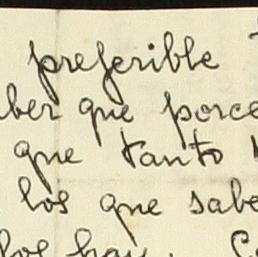 preferible
ber que porce
que tanto
los que sabe
los hay.